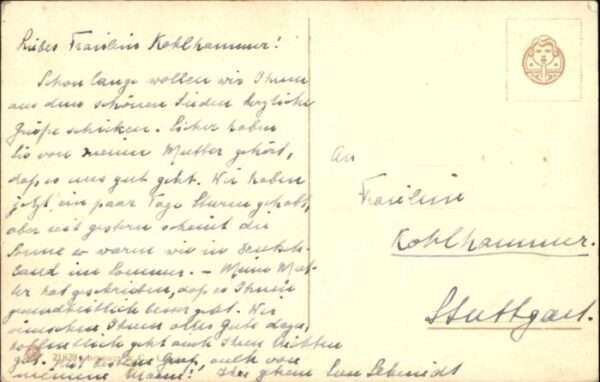 Liebes Fräulein Kohlhammer!
Schon lange wollen wir Ihnen
aus dem schönen Süden herzliche
Grüße schicken. Sicher haben
Sie von meiner Mutter gehört,
daß es uns gut geht. Wir haben
jetzt ein paar Tage Sturm gehabt,
aber seit gestern scheint die
Sonne so warm wie in Deutsch-
land im Sommer. – Meine Mut-
ter hat geschrieben, daß es Ihnen
gesundheitlich besser geht. Wir
wünschen Ihnen alles Gute dazu,
hoffentlich geht auch Ihren
gut. Mit besten Gruß, auch von
meinem Mann! Ihre Schmidt
An
Fräulein
Kohlhammer.
Stuttgart.